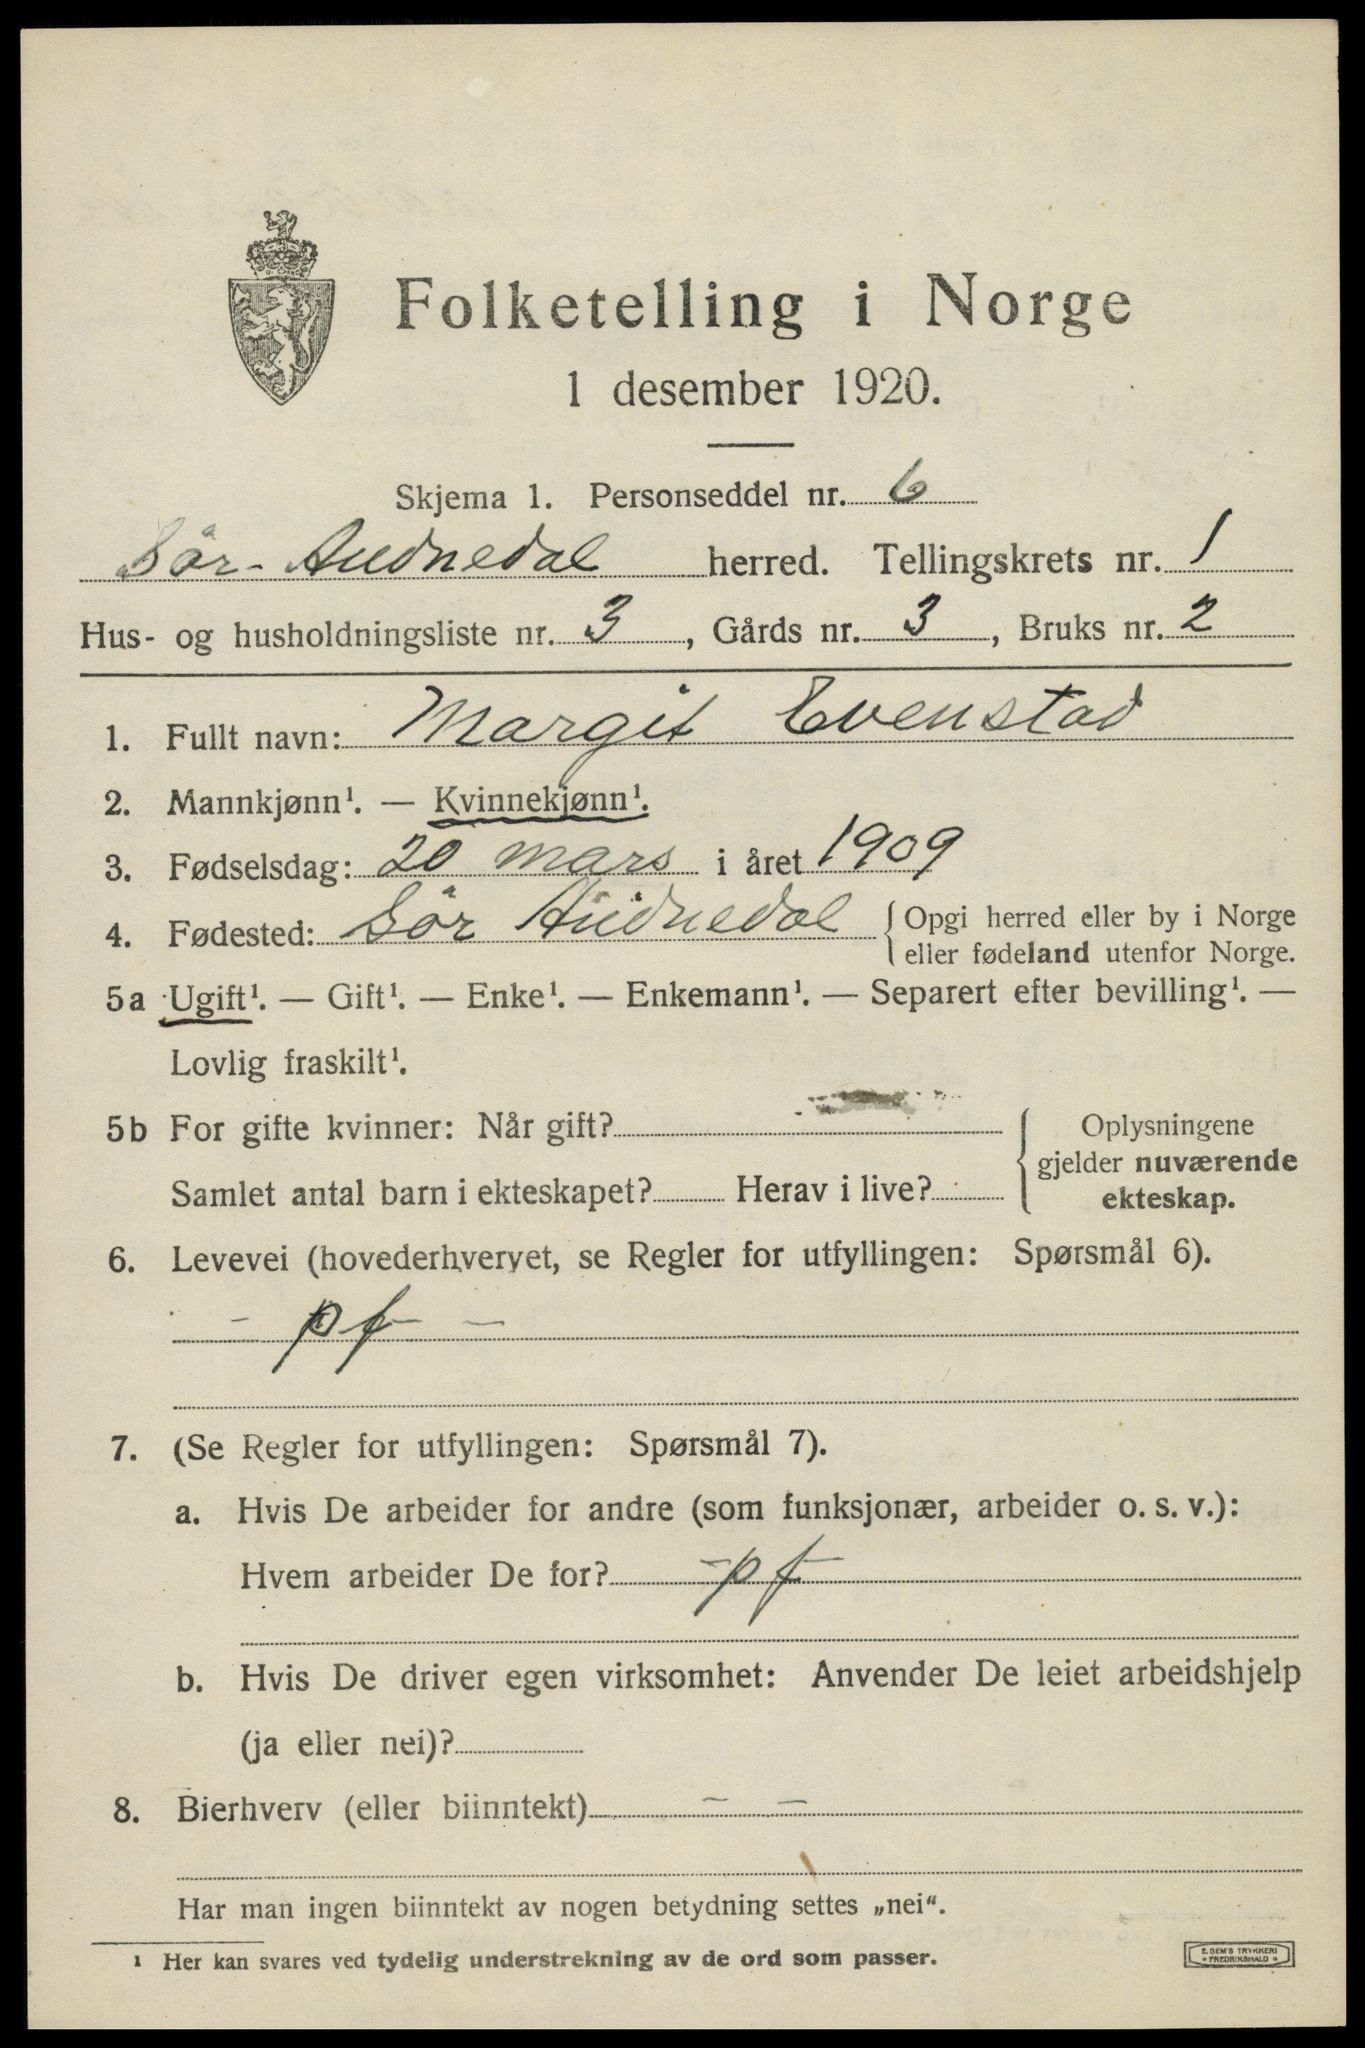 Folketelling i Norge
1 desember 1920.
Skjema 1. Personseddel nr. 6
Sör-Audnedal herred. Tellingskrets nr. 1
Hus- og husholdningsliste nr. 3, Gårds nr. 3, Bruks nr. 2
1. Fullt navn: Margit Evenstad
2. Mannkjønn¹. — Kvinnekjønn¹.
3. Fødselsdag: 20 mars i året 1909
4. Fødested: Sör Audnedal { Opgi herred eller by i Norge
eller fødeland utenfor Norge.
5a Ugift¹. — Gift¹. — Enke¹. — Enkemann¹. — Separert efter bevilling¹. —
Lovlig fraskilt¹.
5b For gifte kvinner: Når gift? { Oplysningene
gjelder nuværende
Samlet antal barn i ekteskapet? Herav i live? ekteskap.
6. Levevei (hovederhvervet, se Regler for utfyllingen: Spørsmål 6).
- pf -
7. (Se Regler for utfyllingen: Spørsmål 7).
a. Hvis De arbeider for andre (som funksjonær, arbeider o. s. v.):
Hvem arbeider De for? -pf-
b. Hvis De driver egen virksomhet: Anvender De leiet arbeidshjelp
(ja eller nei)?
8. Bierhverv (eller biinntekt) - -
Har man ingen biinntekt av nogen betydning settes „nei“.
¹ Her kan svares ved tydelig understrekning av de ord som passer.
E. SEM'S TRYKKERI
• FREDRIKSHALD •